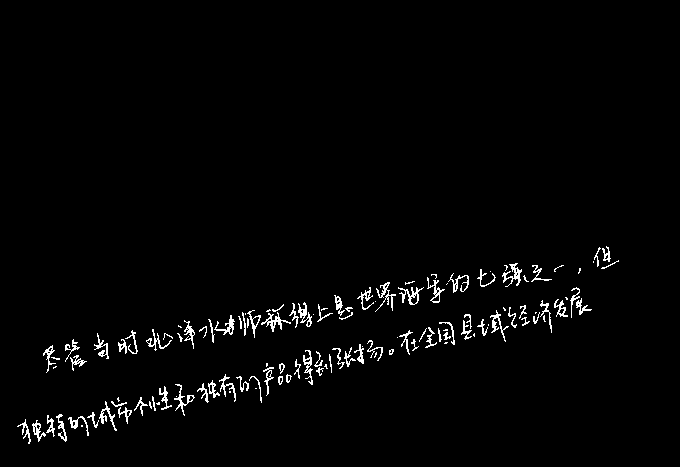 尽管当时北洋水师称得上是世界海军的七强之一，但
独特的城市个性和独有的产品得到张扬。在全国县域经济发展